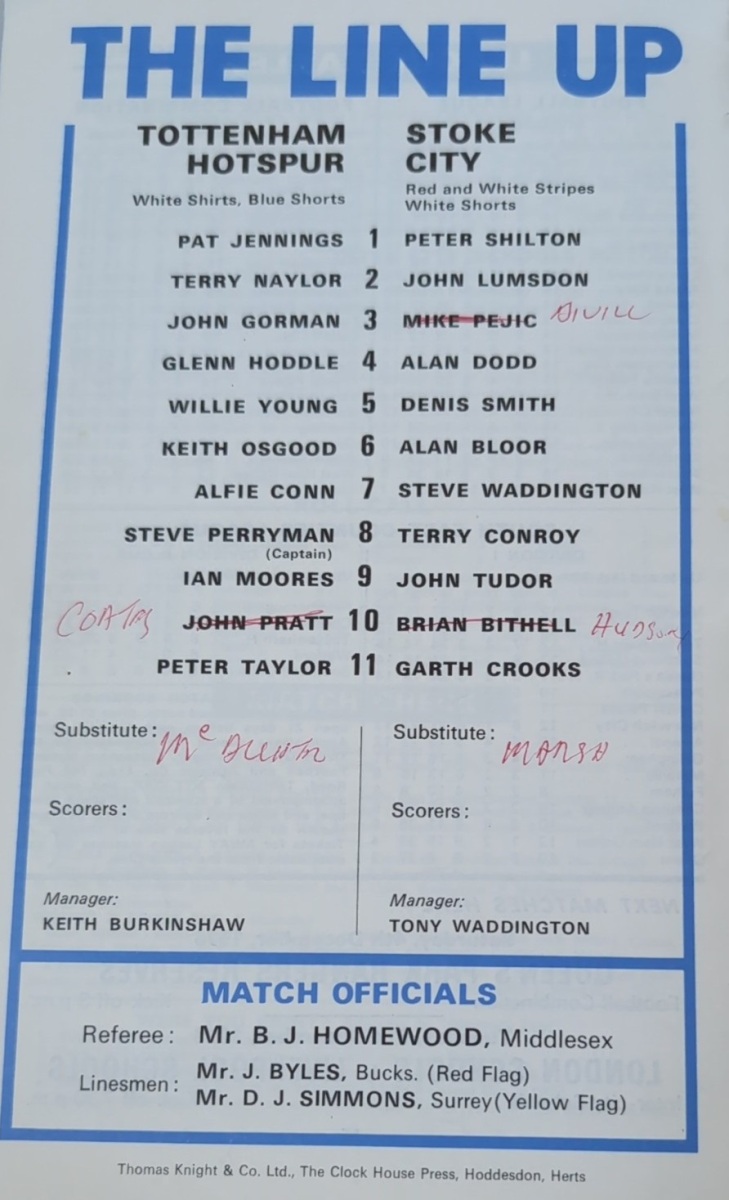 THE LINE UP
TOTTENHAM HOTSPUR
White Shirts, Blue Shorts
STOKE CITY
Red and White Stripes
White Shorts
PAT JENNINGS 1 PETER SHILTON
TERRY NAYLOR 2 JOHN LUMSDON
JOHN GORMAN 3 MIKE PEJIC
GLENN HODDLE 4 ALAN DODD
WILLIE YOUNG 5 DENIS SMITH
KEITH OSGOOD 6 ALAN BLOOR
ALFIE CONN 7 STEVE WADDINGTON
STEVE PERRYMAN 8 TERRY CONROY
(Captain)
IAN MOORES 9 JOHN TUDOR
COATES JOHN PRATT 10 BRIAN BITHELL HUDSON
PETER TAYLOR 11 GARTH CROOKS
Substitute: Substitute: MARSH
Scorers: Scorers:
Manager: Manager:
KEITH BURKINSHAW TONY WADDINGTON
MATCH OFFICIALS
Referee: Mr. B. J. HOMEWOOD, Middlesex
Linesmen: Mr. J. BYLES, Bucks. (Red Flag)
Mr. D. J. SIMMONS, Surrey (Yellow Flag)
Thomas Knight & Co. Ltd., The Clock House Press, Hoddesdon, Herts